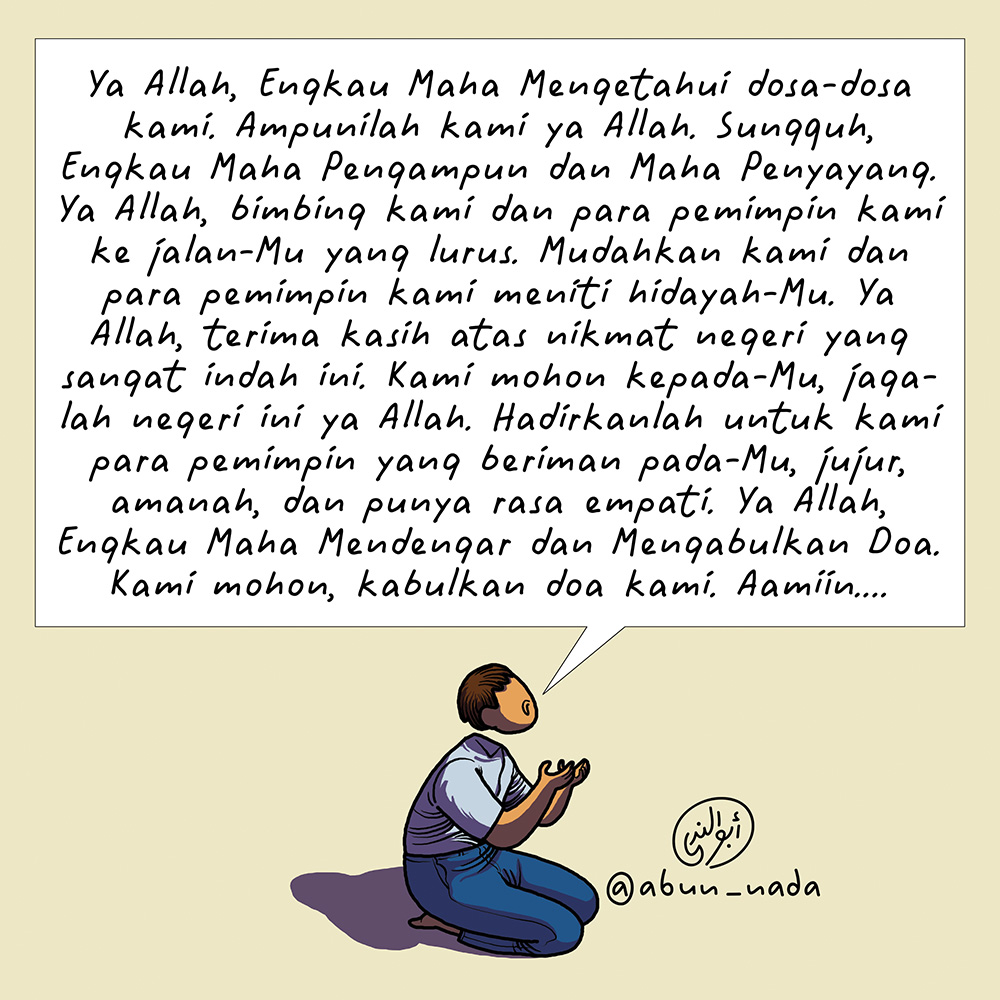 Ya Allah, Engkau Maha Mengetahui dosa-dosa
kami. Ampunilah kami ya Allah. Sungguh,
Engkau Maha Pengampun dan Maha Penyayang.
Ya Allah, bimbing kami dan para pemimpin kami
ke jalan-Mu yang lurus. Mudahkan kami dan
para pemimpin kami meniti hidayah-Mu. Ya
Allah, terima kasih atas nikmat negeri yang
sangat indah ini. Kami mohon kepada-Mu, jaga-
lah negeri ini ya Allah. Hadirkanlah untuk kami
para pemimpin yang beriman pada-Mu, jujur,
amanah, dan punya rasa empati. Ya Allah,
Engkau Maha Mendengar dan Mengabulkan Doa.
Kami mohon, kabulkan doa kami. Aamiin....
أبو الندى
@abun_nada